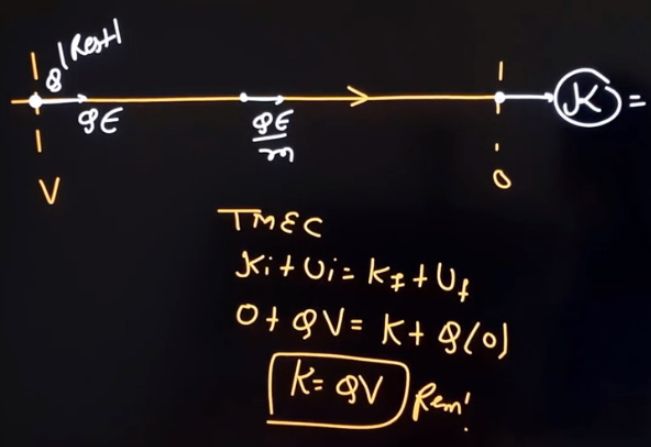 q |Rest|
qE
qE/m
K =
V
0
TMEC
Ki + Ui = Kf + Uf
0 + qV = K + q(0)
K = qV Rem!